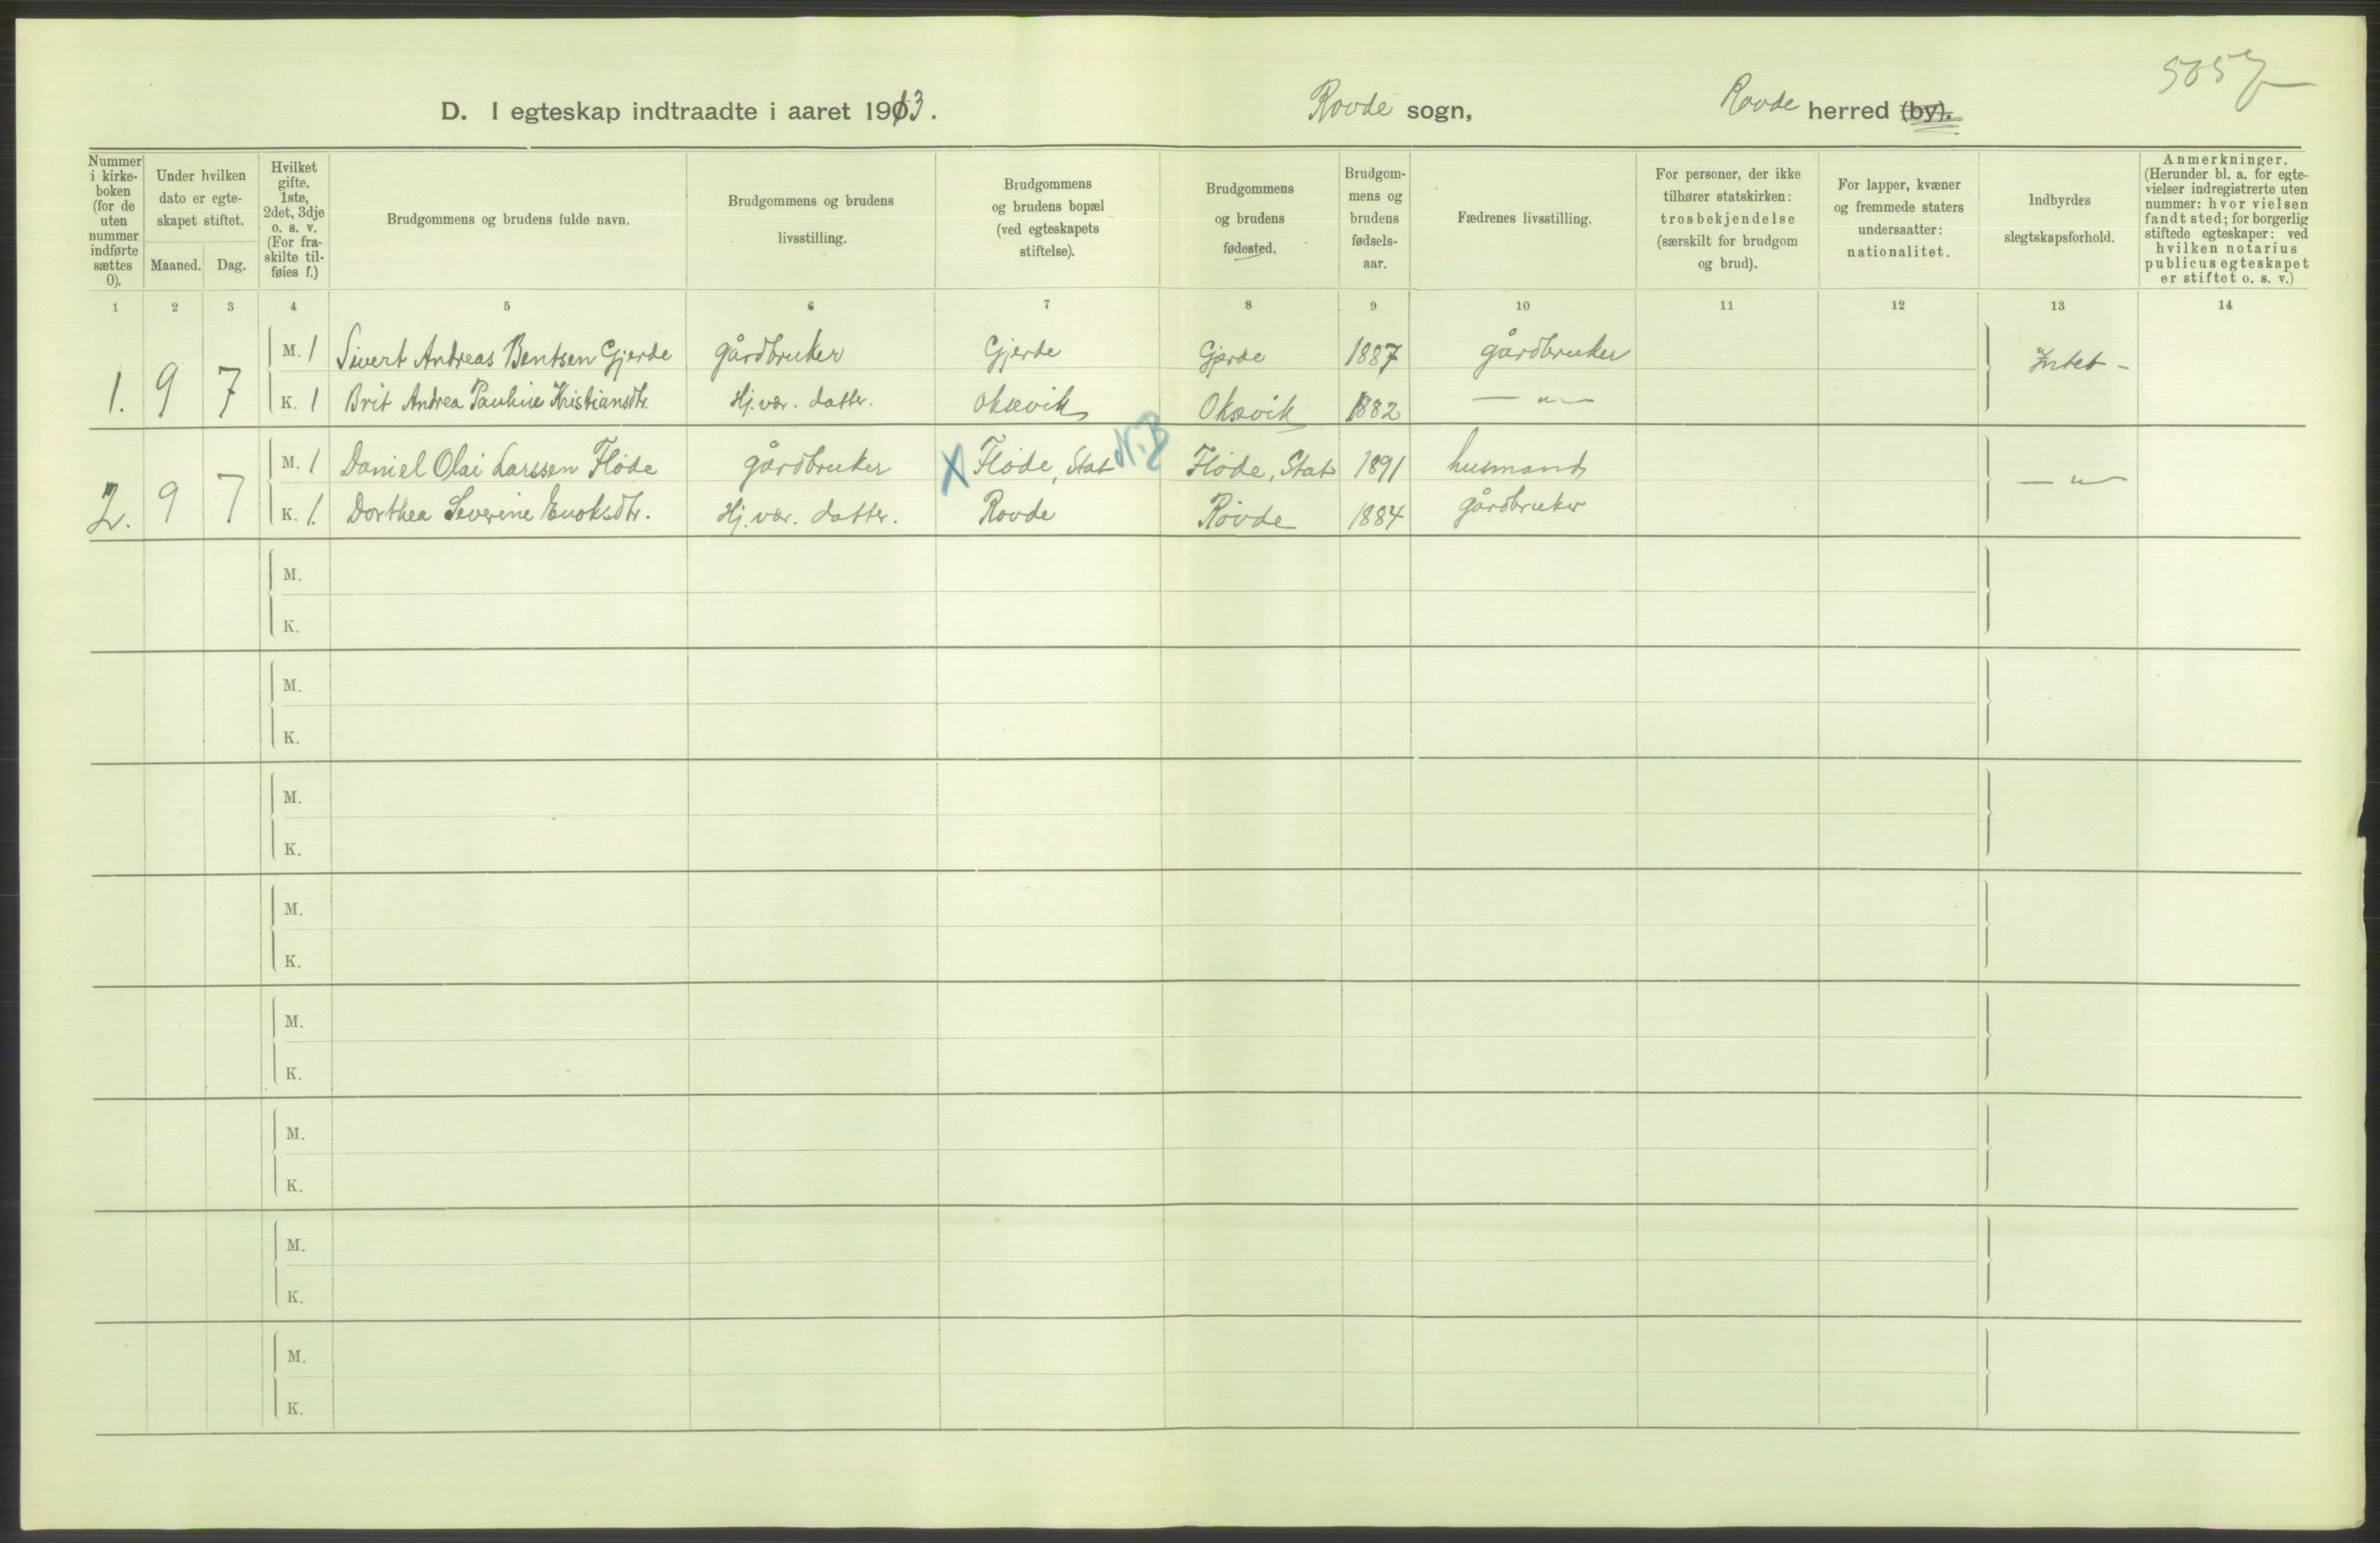 5057
D. I egteskap indtraadte i aaret 1913. Rovde sogn, Rovde herred (by).
Nummer i kirke-boken (for de uten nummer indførte sættes 0).
Under hvilken dato er egte-skapet stiftet.
Maaned. Dag.
Hvilket gifte. 1ste, 2det, 3dje o. s. v. (For fra-skilte til-føies f.)
Brudgommens og brudens fulde navn.
Brudgommens og brudens livsstilling.
Brudgommens og brudens bopæl (ved egteskapets stiftelse).
Brudgommens og brudens fødested.
Brudgom-mens og brudens fødsels-aar.
Fædrenes livsstilling.
For personer, der ikke tilhører statskirken: trosbekjendelse (særskilt for brudgom og brud).
For lapper, kvæner og fremmede staters undersaatter: nationalitet.
Indbyrdes slegtskapsforhold.
Anmerkninger. (Herunder bl. a. for egte-vielser indregistrerte uten nummer: hvor vielsen fandt sted; for borgerlig stiftede egteskaper: ved hvilken notarius publicus egteskapet er stiftet o. s. v.)
1 2 3 4 5 6 7 8 9 10 11 12 13 14
1. 9 7 M. 1 Sivert Andreas Bentsen Gjerde gårdbruker Gjerde Gjerde 1887 gårdbruker Intet -
K. 1 Brit Andrea Pauline Kristiansdtr. Hj. vær. datter. Oksvik Oksvik 1882 — " —
2. 9 7 M. 1 Daniel Olai Larssen Fløde gårdbruker X Fløde, Stat N.B Fløde, Stat 1891 husmand — " —
K. 1. Dorthea Severine Enoksdtr. Hj. vær. datter. Rovde Rovde 1884 gårdbruker
M.
K.
M.
K.
M.
K.
M.
K.
M.
K.
M.
K.
M.
K.
M.
K.